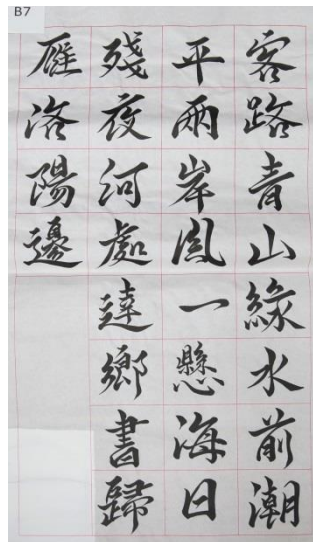 B7
客路青山緣水前潮
平兩岸風一懸海日
殘夜河處達鄉書歸
雁洛陽邊